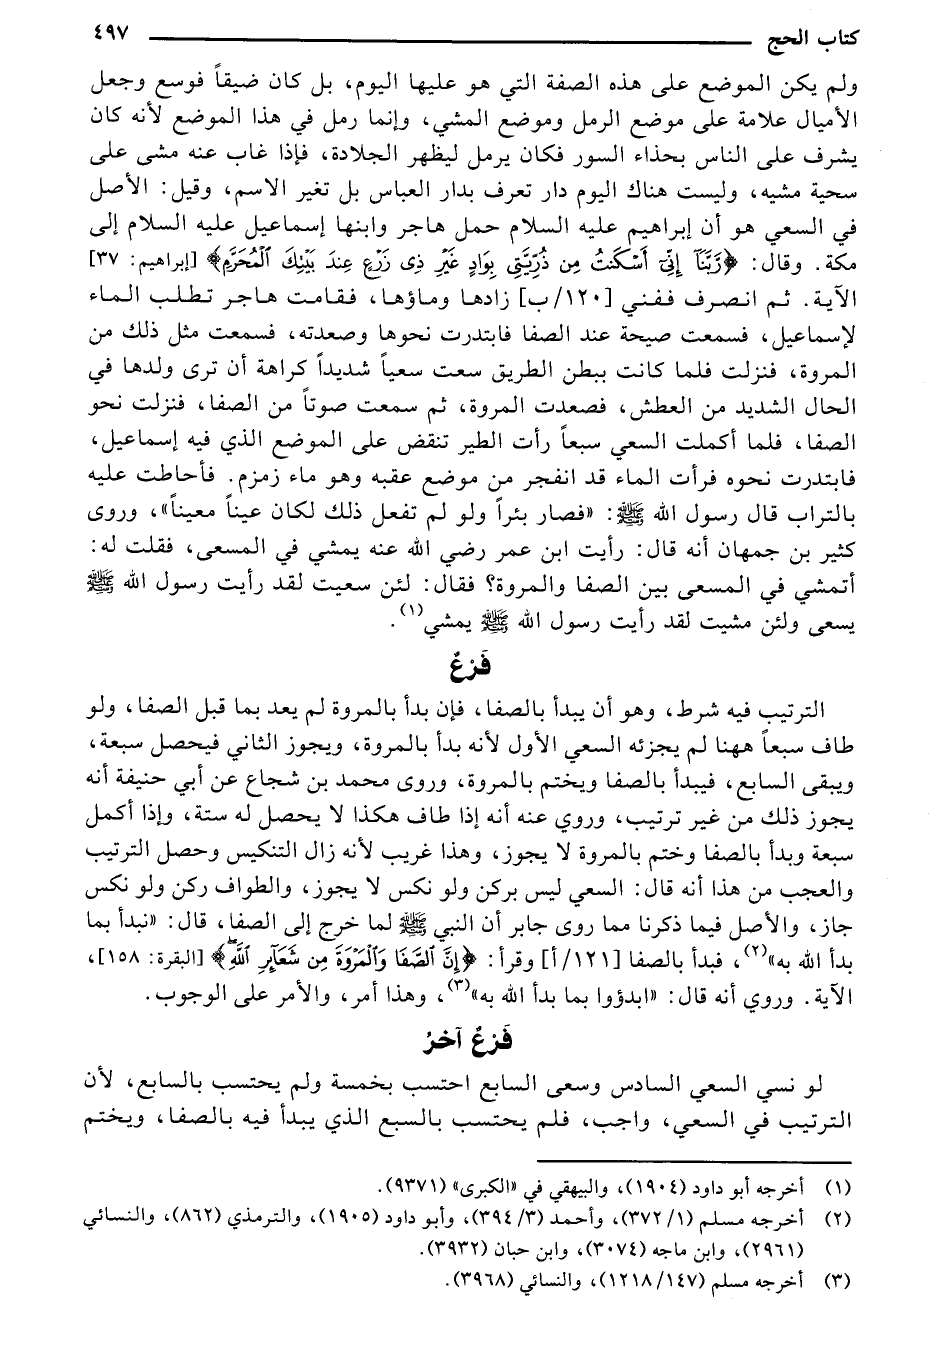 كتاب الحج ٤٩٧
ولم يكن الموضع على هذه الصفة التي هو عليها اليوم، بل كان ضيقاً فوسع وجعل
الأميال علامة على موضع الرمل وموضع المشي، وإنما رمل في هذا الموضع لأنه كان
يشرف على الناس بحذاء السور فكان يرمل ليظهر الجلادة، فإذا غاب عنه مشى على
سحية مشيه، وليست هناك اليوم دار تعرف بدار العباس بل تغير الاسم، وقيل: الأصل
في السعي هو أن إبراهيم عليه السلام حمل هاجر وابنها إسماعيل عليه السلام إلى
مكة. وقال: ﴿رَّبَّنَآ إِنِّىٓ أَسْكَنتُ مِن ذُرِّيَّتِى بِوَادٍ غَيْرِ ذِى زَرْعٍ عِندَ بَيْتِكَ ٱلْمُحَرَّمِ﴾ [إبراهيم: ٣٧]
الآية. ثم انصرف ففني [١٢٠/ب] زادها وماؤها، فقامت هاجر تطلب الماء
لإسماعيل، فسمعت صيحة عند الصفا فابتدرت نحوها وصعدته، فسمعت مثل ذلك من
المروة، فنزلت فلما كانت ببطن الطريق سعت سعياً شديداً كراهة أن ترى ولدها في
الحال الشديد من العطش، فصعدت المروة، ثم سمعت صوتاً من الصفا، فنزلت نحو
الصفا، فلما أكملت السعي سبعاً رأت الطير تنقض على الموضع الذي فيه إسماعيل،
فابتدرت نحوه فرأت الماء قد انفجر من موضع عقبه وهو ماء زمزم. فأحاطت عليه
بالتراب قال رسول الله ﷺ: «فصار بئراً ولو لم تفعل ذلك لكان عيناً معيناً»، وروى
كثير بن جمهان أنه قال: رأيت ابن عمر رضي الله عنه يمشي في المسعى، فقلت له:
أتمشي في المسعى بين الصفا والمروة؟ فقال: لئن سعيت لقد رأيت رسول الله ﷺ
يسعى ولئن مشيت لقد رأيت رسول الله ﷺ يمشي(١).
فَرْعٌ
الترتيب فيه شرط، وهو أن يبدأ بالصفا، فإن بدأ بالمروة لم يعد بما قبل الصفا، ولو
طاف سبعاً ههنا لم يجزئه السعي الأول لأنه بدأ بالمروة، ويجوز الثاني فيحصل سبعة،
ويبقى السابع، فيبدأ بالصفا ويختم بالمروة، وروى محمد بن شجاع عن أبي حنيفة أنه
يجوز ذلك من غير ترتيب، وروي عنه أنه إذا طاف هكذا لا يحصل له ستة، وإذا أكمل
سبعة وبدأ بالصفا وختم بالمروة لا يجوز، وهذا غريب لأنه زال التنكيس وحصل الترتيب
والعجب من هذا أنه قال: السعي ليس بركن ولو نكس لا يجوز، والطواف ركن ولو نكس
جاز، والأصل فيما ذكرنا مما روى جابر أن النبي ﷺ لما خرج إلى الصفا، قال: «نبدأ بما
بدأ الله به»(٢)، فبدأ بالصفا [١٢١/أ] وقرأ: ﴿إِنَّ ٱلصَّفَا وَٱلْمَرْوَةَ مِن شَعَآئِرِ ٱللَّهِ﴾ [البقرة: ١٥٨]،
الآية. وروي أنه قال: «ابدؤوا بما بدأ الله به»(٣)، وهذا أمر، والأمر على الوجوب.
فَرْعٌ آخرُ
لو نسي السعي السادس وسعى السابع احتسب بخمسة ولم يحتسب بالسابع، لأن
الترتيب في السعي، واجب، فلم يحتسب بالسبع الذي يبدأ فيه بالصفا، ويختم
(١) أخرجه أبو داود (١٩٠٤)، والبيهقي في «الكبرى» (٩٣٧١).
(٢) أخرجه مسلم (٣٧٢/١)، وأحمد (٣٩٤/٣)، وأبو داود (١٩٠٥)، والترمذي (٨٦٢)، والنسائي
(٢٩٦١)، وابن ماجه (٣٠٧٤)، وابن حبان (٣٩٣٢).
(٣) أخرجه مسلم (١٢١٨/١٤٧)، والنسائي (٣٩٦٨).